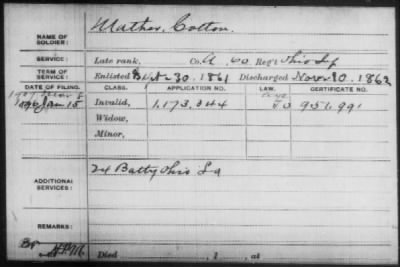 NAME OF SOLDIER: Mather, Cotton.
SERVICE: Late rank, Co. A, 60 Reg't Ohio Inf
TERM OF SERVICE: Enlisted 30, 1861 Discharged Nov 10, 1862
DATE OF FILING. CLASS. APPLICATION NO. LAW. CERTIFICATE NO.
Jan. 15 Invalid, 1,173,344 951,991
Widow,
Minor,
ADDITIONAL SERVICES: 24 Batty Ohio L A
REMARKS:
Died , 1 , at